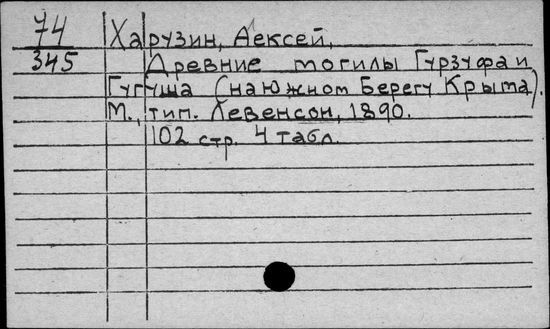 74 Харузин, Алексей,
345 Древние могилы Гурзуфа и
Гугуша (на Южном Берегу Крыма).
М., тип. Левенсон, 1890.
102 стр. 4 табл.